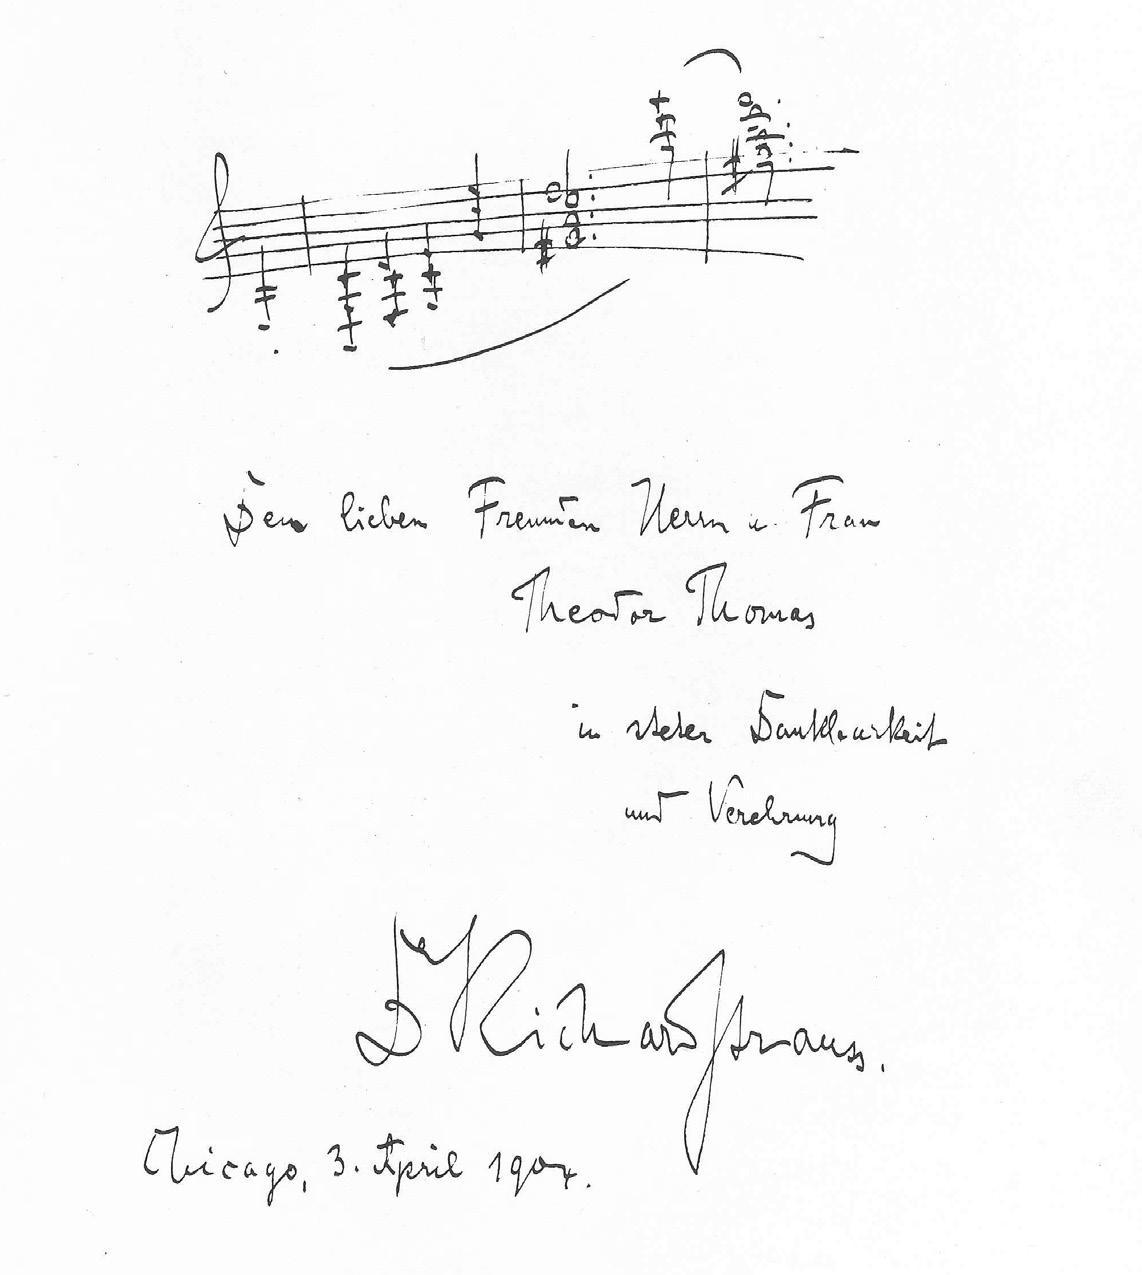 Den lieben Freunden Herrn u. Frau
Theodor Thomas
in steter Dankbarkeit
und Verehrung
Dr Richard Strauss.
Chicago, 3. April 1904.